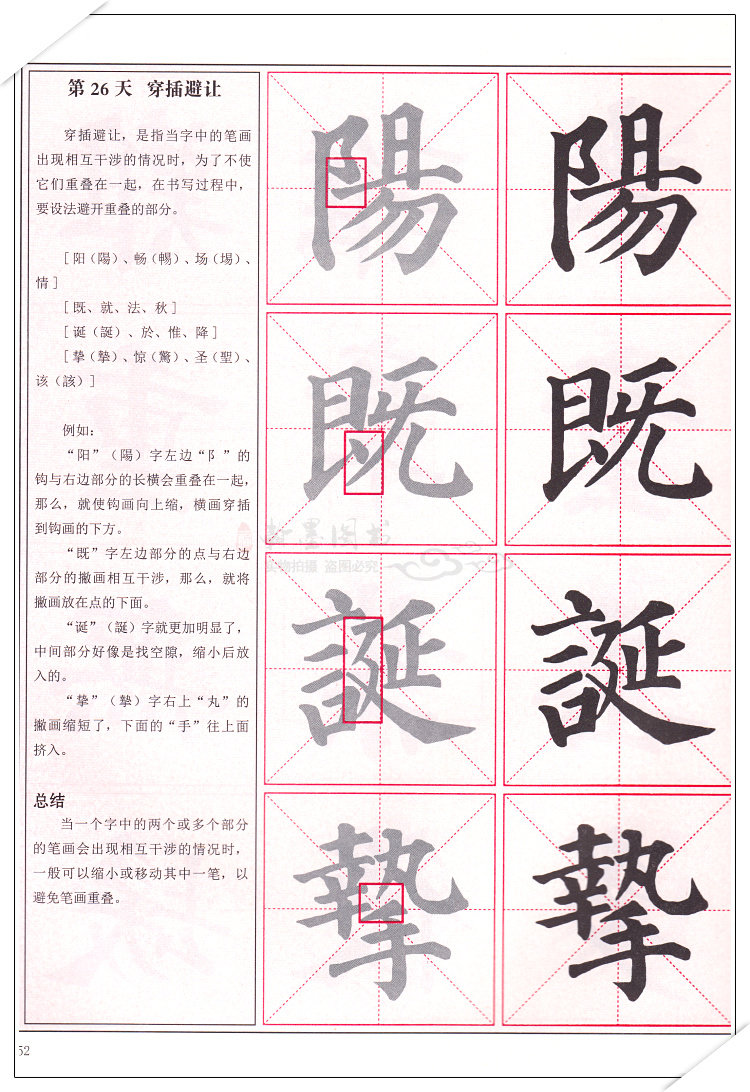 第 26 天 穿插避让
穿插避让，是指当字中的笔画
出现相互干涉的情况时，为了不使
它们重叠在一起，在书写过程中，
要设法避开重叠的部分。
［阳（陽）、畅（暢）、场（場）、
情］
［既、就、法、秋］
［诞（誕）、於、惟、降］
［挚（摯）、惊（驚）、圣（聖）、
该（該）］
例如：
“阳”（陽）字左边“阝”的
钩与右边部分的长横会重叠在一起，
那么，就使钩画向上缩，横画穿插
到钩画的下方。
“既”字左边部分的点与右边
部分的撇画相互干涉，那么，就将
撇画放在点的下面。
“诞”（誕）字就更加明显了，
中间部分好像是找空隙，缩小后放
入的。
“挚”（摯）字右上“丸”的
撇画缩短了，下面的“手”往上面
挤入。
总结
当一个字中的两个或多个部分
的笔画会出现相互干涉的情况时，
一般可以缩小或移动其中一笔，以
避免笔画重叠。
陽 陽
既 既
誕 誕
摯 摯
翰墨图书
实物拍摄 盗图必究
52